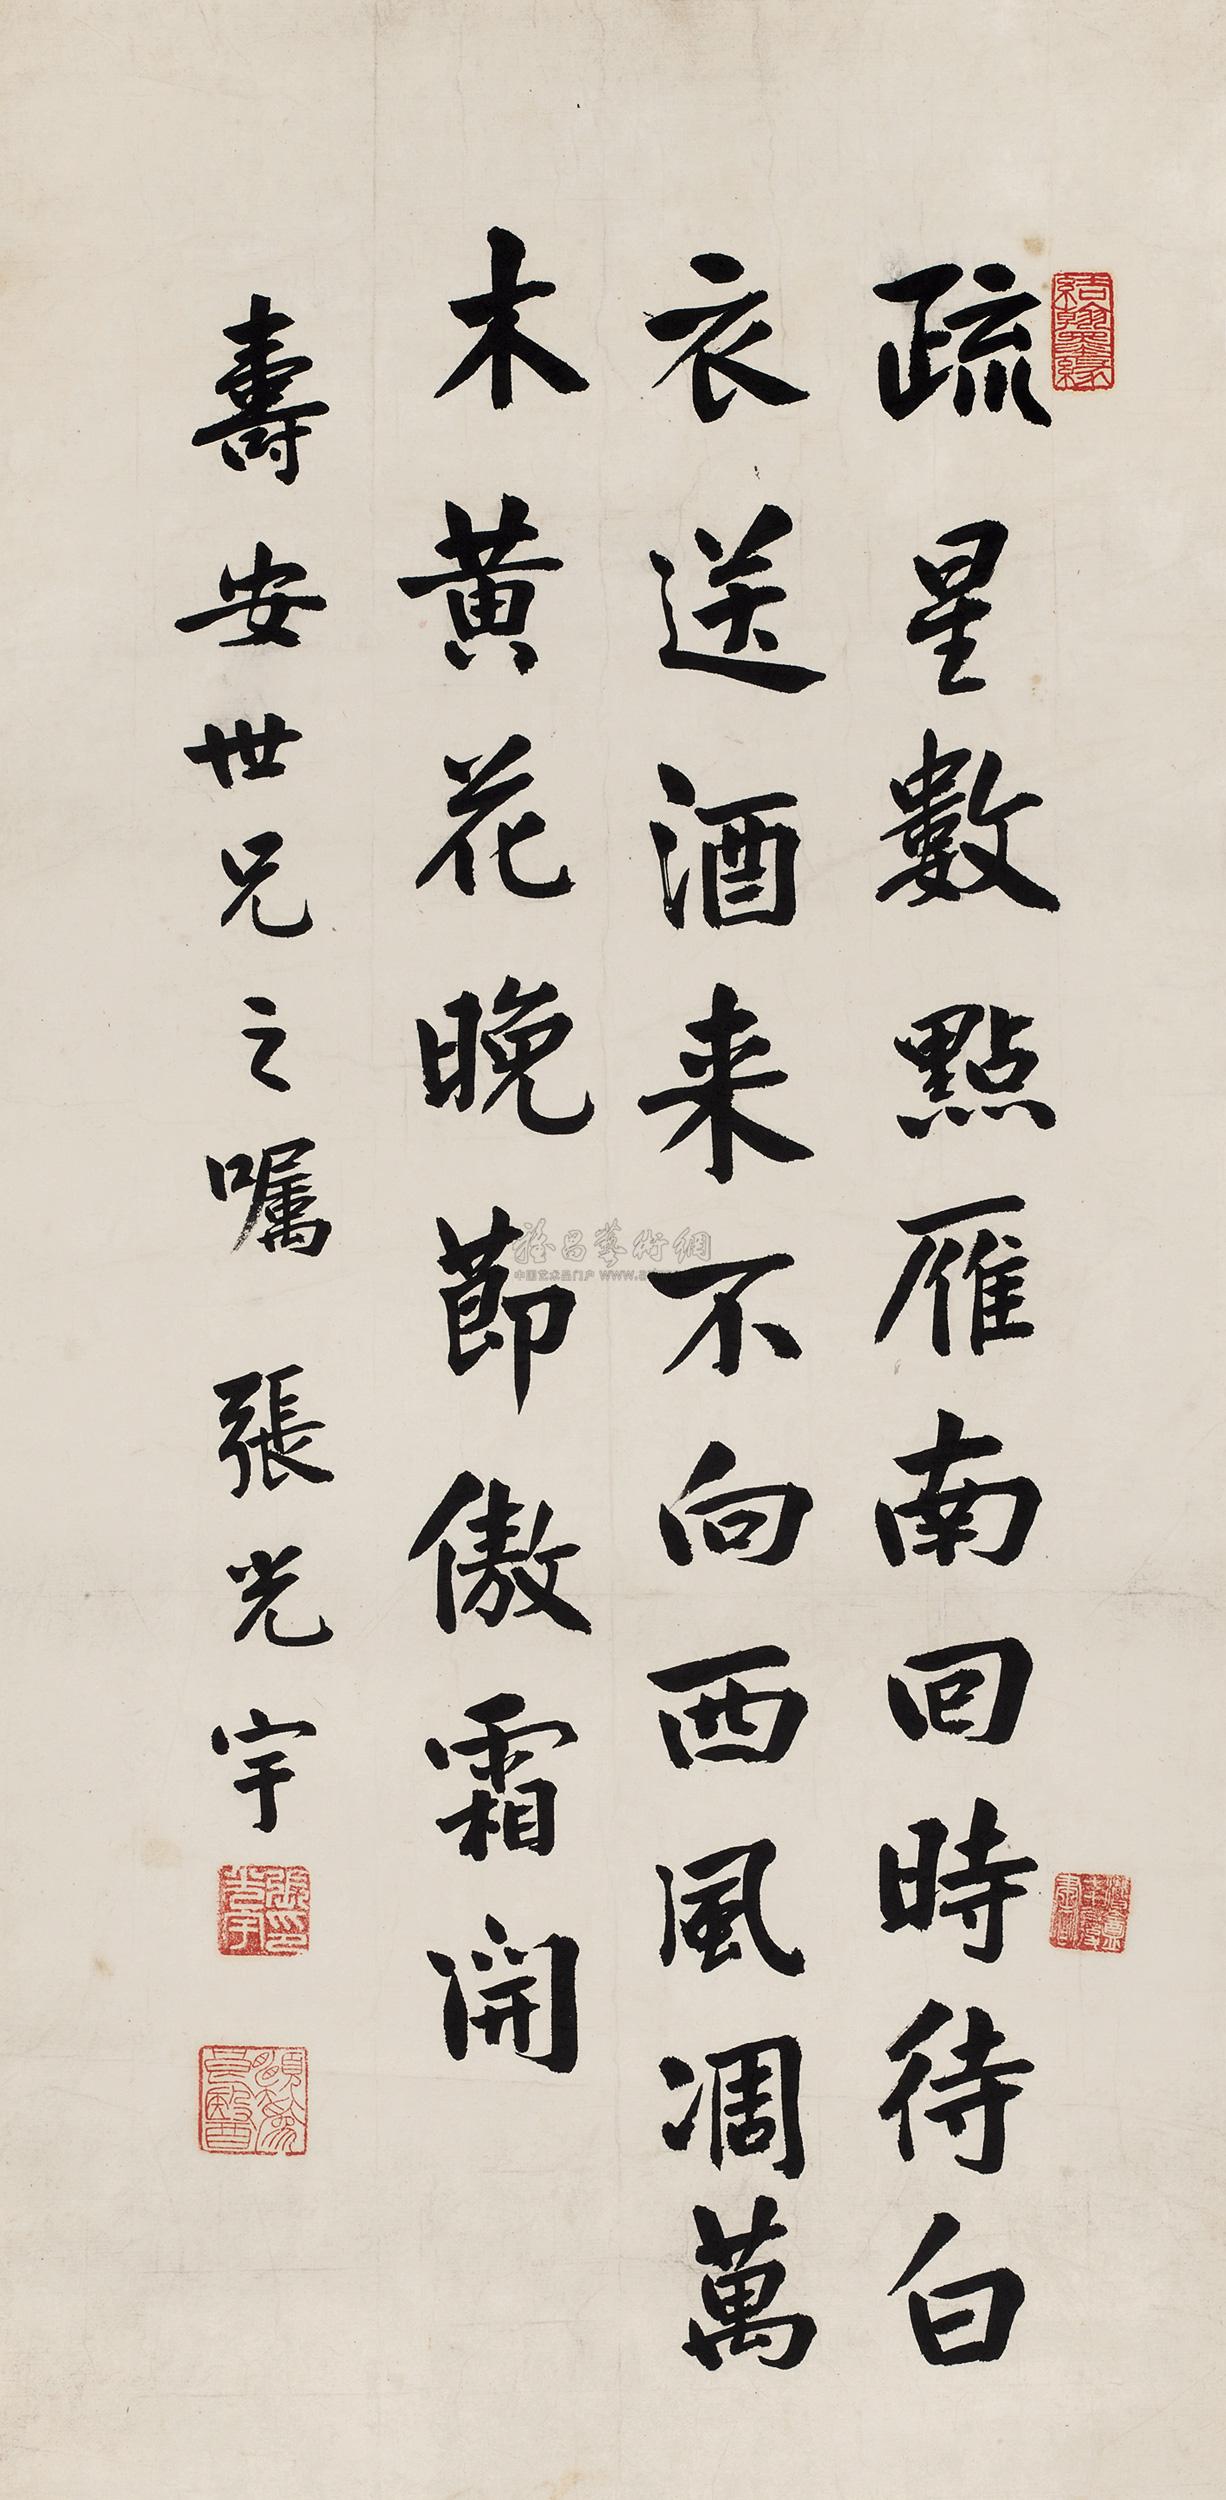 疏星數點雁南回時待白
衣送酒来不向西風凋萬
木黄花晚節傲霜開
壽安世兄之嘱 張光宇
結翰墨緣
張光宇印
雅昌藝術網
中国艺术品门户 www.